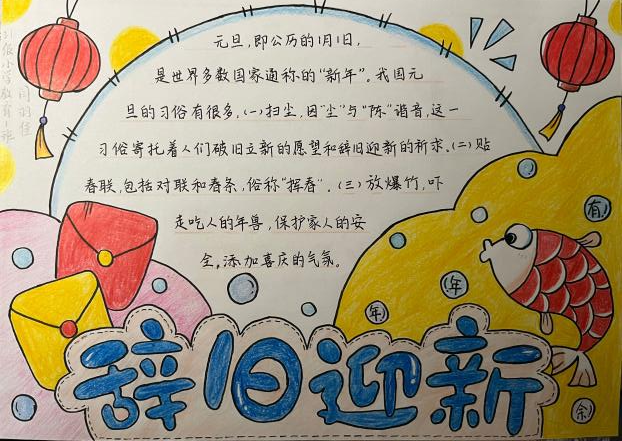 元旦，即公历的1月1日，
是世界多数国家通称的"新年"。我国元
旦的习俗有很多，(一)扫尘，因"尘"与"陈"谐音，这一
习俗寄托着人们破旧立新的愿望和辞旧迎新的祈求。(二)贴
春联，包括对联和春条，俗称"挥春"。(三)放爆竹，吓
走吃人的年兽，保护家人的安
全，添加喜庆的气氛。
年年有余
辞旧迎新